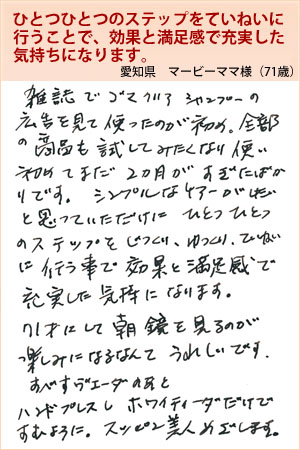 ひとつひとつのステップをていねいに
行うことで、効果と満足感で充実した
気持ちになります。
愛知県　マービーママ様（71歳）
雑誌でゴマクリア シャンプーの
広告を見て使ったのが初め。全部
の商品も試してみたくなり使い
初めてまだ 2カ月がすぎたばか
りです。 シンプルなケアーが
と思っていただけに ひとつひとつ
のステップをじっくり、ゆっくり、ていねい
に行う事で 効果と満足感で
充実した気持になります。
71才にして 朝鏡を見るのが
楽しみになるなんて うれしいです。
すべすヴェーダの
ハンドプレスし ホワイティーダだけで
すむように。スッピン美人めざします。